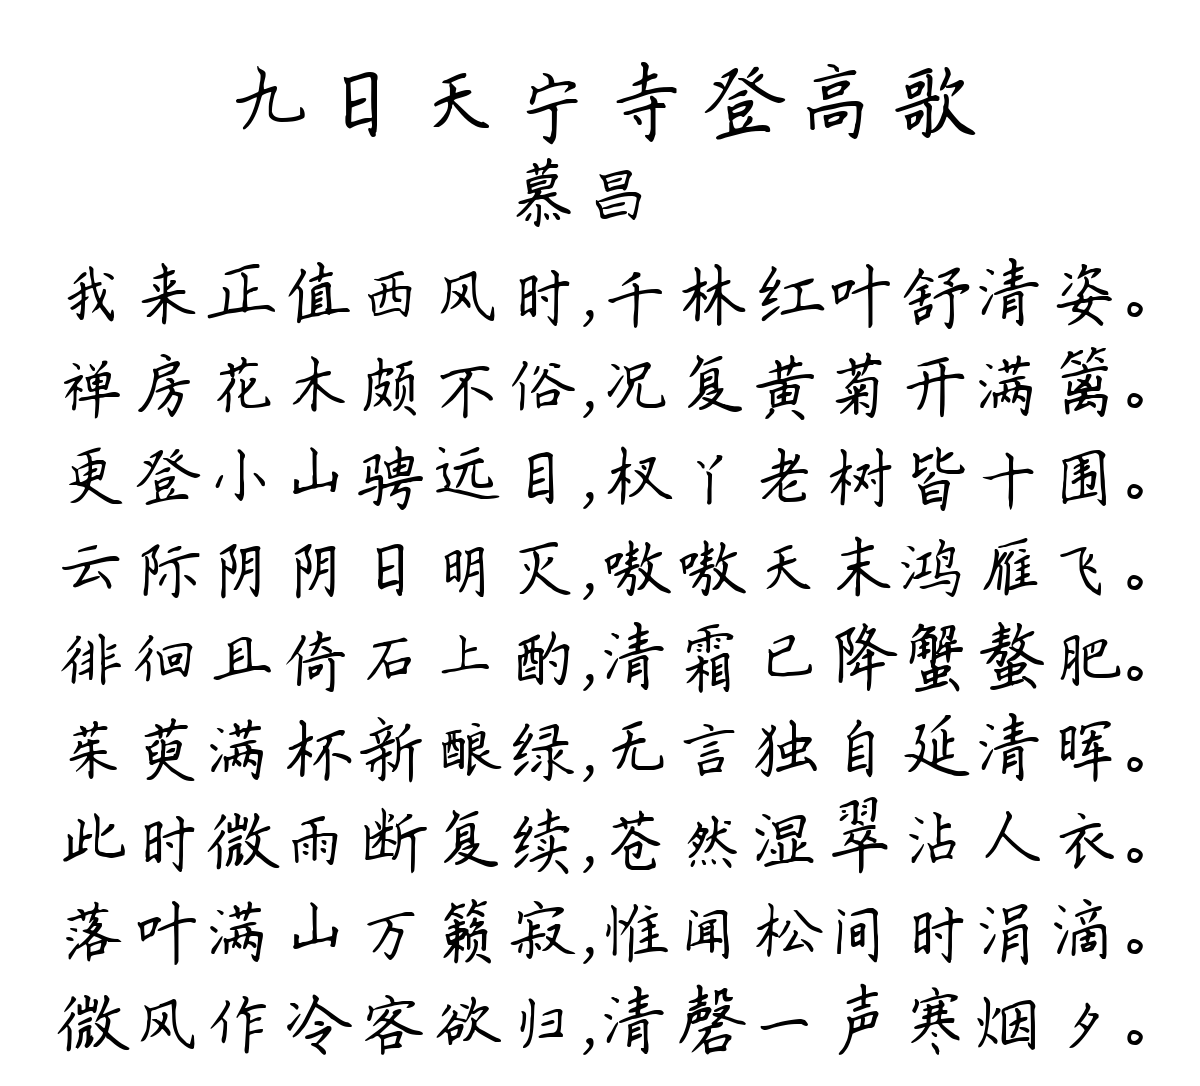 九日天宁寺登高歌
慕昌
我来正值西风时,千林红叶舒清姿。
禅房花木颇不俗,况复黄菊开满篱。
更登小山骋远目,杈丫老树皆十围。
云际阴阴日明灭,嗷嗷天末鸿雁飞。
徘徊且倚石上酌,清霜已降蟹螯肥。
茱萸满杯新酿绿,无言独自延清晖。
此时微雨断复续,苍然湿翠沾人衣。
落叶满山万籁寂,惟闻松间时涓滴。
微风作冷客欲归,清磬一声寒烟夕。